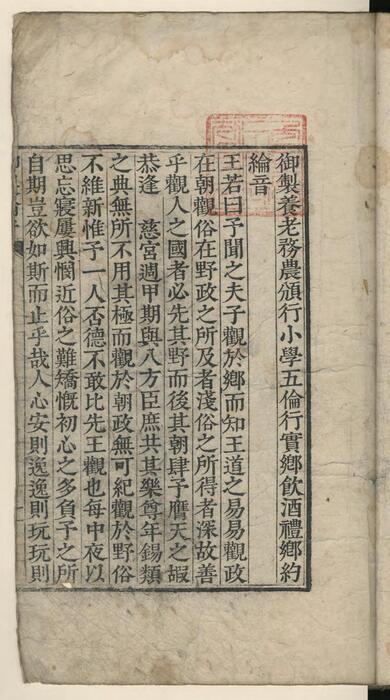 御製養老務農頒行小學五倫行實鄉飮酒禮鄉約
綸音
王若曰予聞之夫子觀於鄉而知王道之易易觀政
在朝觀俗在野政之所及者淺俗之所得者深故善
乎觀人之國者必先其野而後其朝肆予膺天之嘏
恭逢　慈宮週甲期與八方臣庶共其樂尊年錫類
之典無所不用其極而觀於朝政無可紀觀於野俗
不維新惟予一人否德不敢比先王觀也每中夜以
思忘寢屢興憫近俗之難矯慨初心之多負予之所
自期豈欲如斯而止乎哉人心安則逸逸則玩玩則